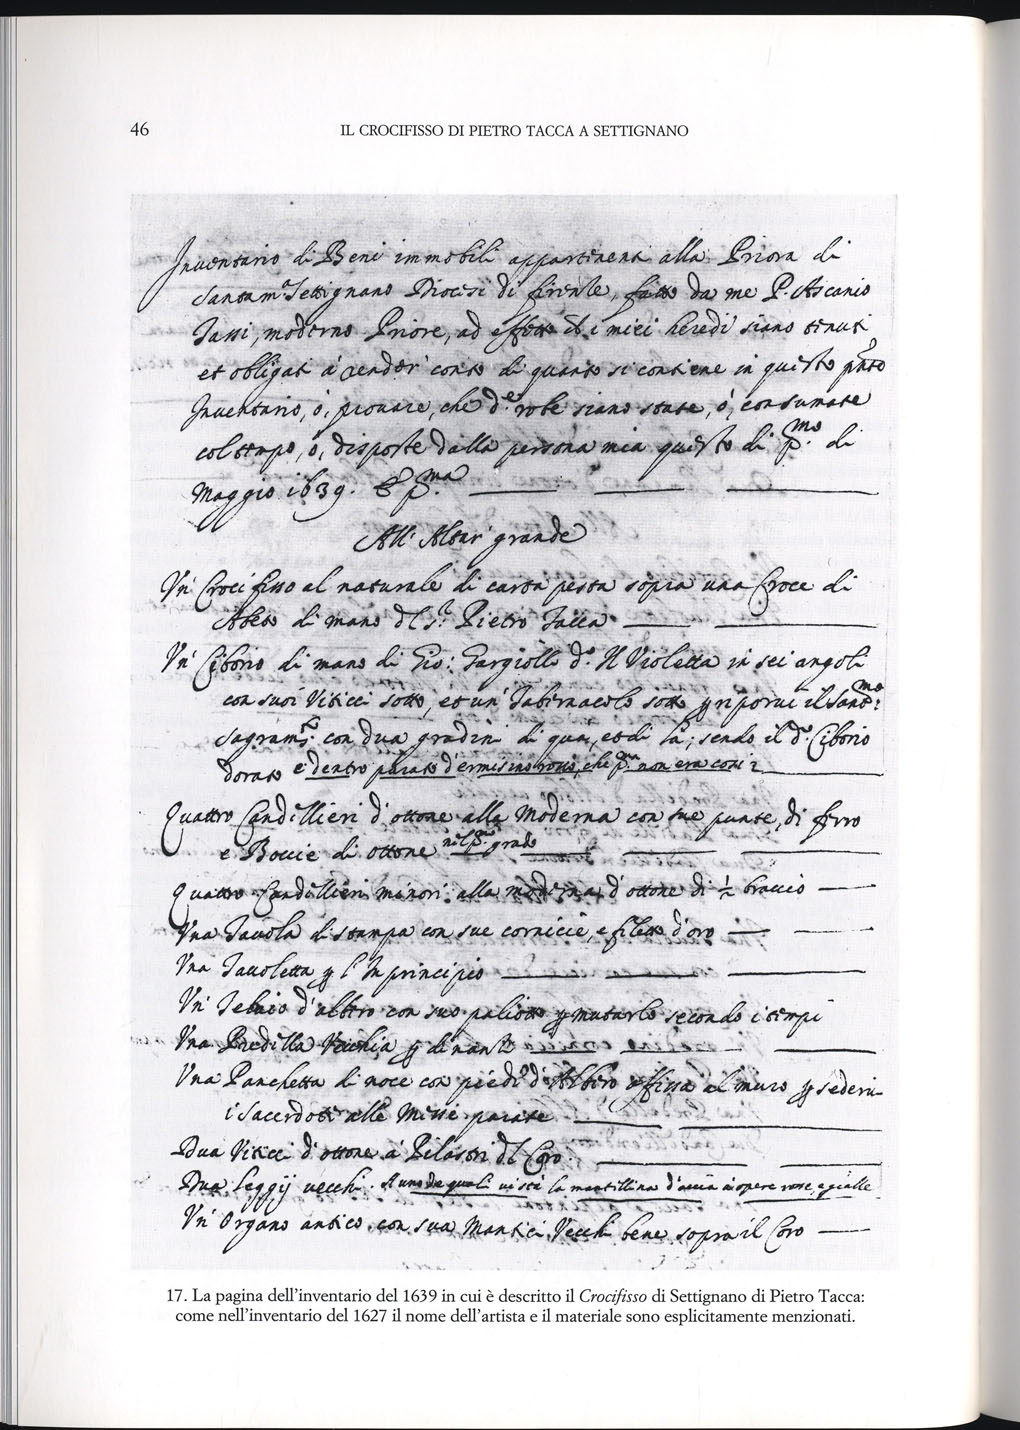 46
IL CROCIFISSO DI PIETRO TACCA A SETTIGNANO
Inventario di Beni immobili appartenenti alla Priora di
Santa m.ª Settignano Diocesi di firenze, fatto da me P. Ascanio
Tassi, moderno Priore, ad effetto ch i miei heredi siano tenuti
et obligati à render conto di quanto si contiene in questo p̃nte
Inventario, ò, provare, che d.e robe siano state, ò, consumate
col tempo, ò, disposte dalla persona mia questo di p.mo di
Maggio 1639. p.ma
All' Altar' grande
Vn' Crocifisso al naturale di carta pesta sopra una Croce di
Abeto di mano dl s.r Pietro Tacca
Vn' Ciborio di mano di Gio: Gargiolli d.o Il Violetta in sei angoli
con suoi Viticci sotto, et un' Tabernacolo sotto p riporvi il Sant.mo
sagram.to con dua gradini di qua, et di là; sendo il d.o Ciborio
dorato e dentro parato d'ermisino rosso, che p.a non era cosi
Quattro Candellieri d'ottone alla Moderna con sue punte, di ferro
e Boccie di ottone nel p.o grado
Quattro Candellieri minori alla moderna d'ottone di ½ braccio
Vna Tavola di stampa con sue cornicie, e filetto d'oro
Vna Tavoletta p l' In principio
Vn' Telaio d'albero con suo paliotto p mutarlo secondo i tempi
Vna Predella Vecchia p dinanzi
Vna Panchetta di noce con piedi d'Albero affissa al muro p sedervi
i Sacerdoti alle Messe parate
Dua Viticci d'ottone à Pilastri dl Coro.
Dua leggij vecchi. A uno de quali vi stà la mantellina d'accia à opere rosse, e gialle
Vn' Organo antico con sua Mantici Vecchi bene sopra il Coro
17. La pagina dell'inventario del 1639 in cui è descritto il Crocifisso di Settignano di Pietro Tacca:
come nell'inventario del 1627 il nome dell'artista e il materiale sono esplicitamente menzionati.